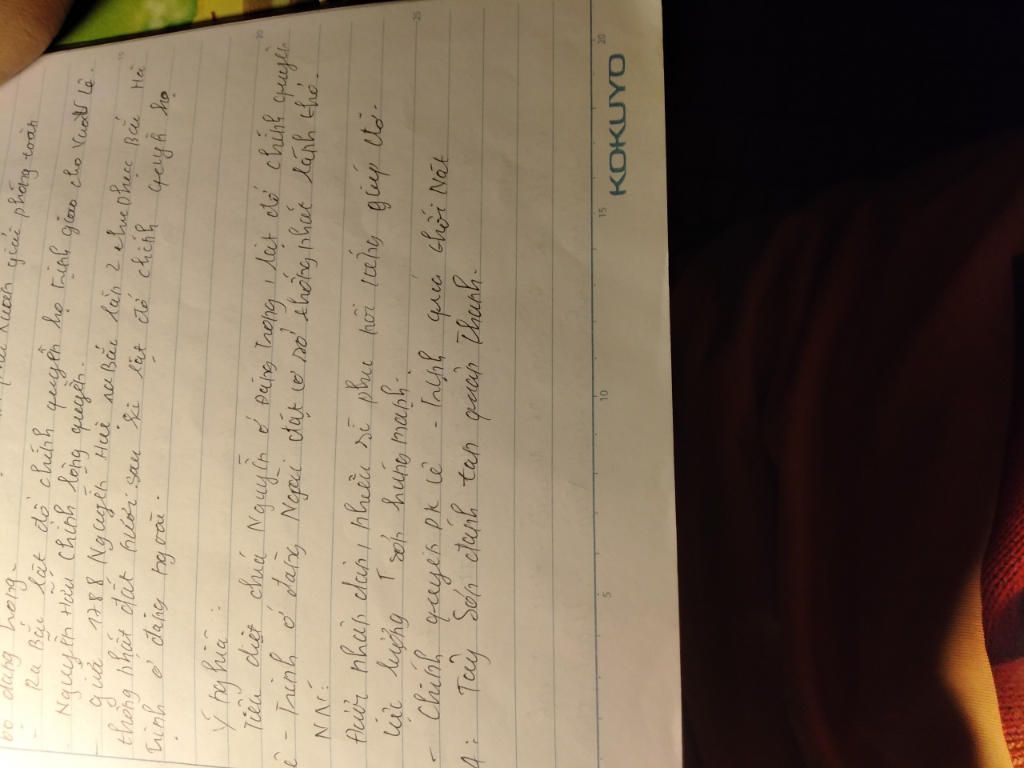 đàng trong.
- Ra Bắc lật đổ chính quyền họ trịnh giao cho vua Lê.
- Nguyễn Hữu Chỉnh lộng quyền.
- giữa 1788 Nguyễn Huệ ra Bắc lần 2 Bắc Hà
thống nhất đất nước sau khi lật đổ chính quyền họ
Trịnh ở đàng ngoài.
Ý nghĩa:
Tiêu diệt chúa Nguyễn ở Đàng Trong, lật đổ chính quyền
Lê - Trịnh ở đàng Ngoài đặt cơ sở thống nhất lãnh thổ.
NN:
Được nhân dân, nhiều sĩ phu nổi tiếng giúp đỡ.
Lực lượng T Sơn hùng mạnh.
- Chính quyền PK Lê - Trịnh quá thối nát
4: Tây Sơn đánh tan quân Thanh.
5
10
15
20
KOKUYO
15
20
25